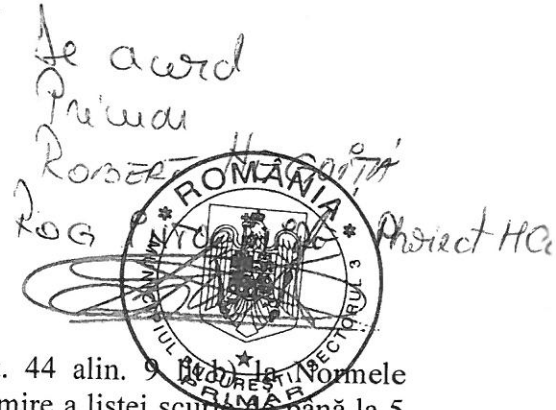 De acord
Primar
ROBERT NEGOIȚĂ
Rog Proiect HC
ROMÂNIA
MUNICIPIUL BUCUREȘTI SECTORUL 3
PRIMAR
44 alin. 9 lit. b) la Normele
mire a listei scurte până la 5